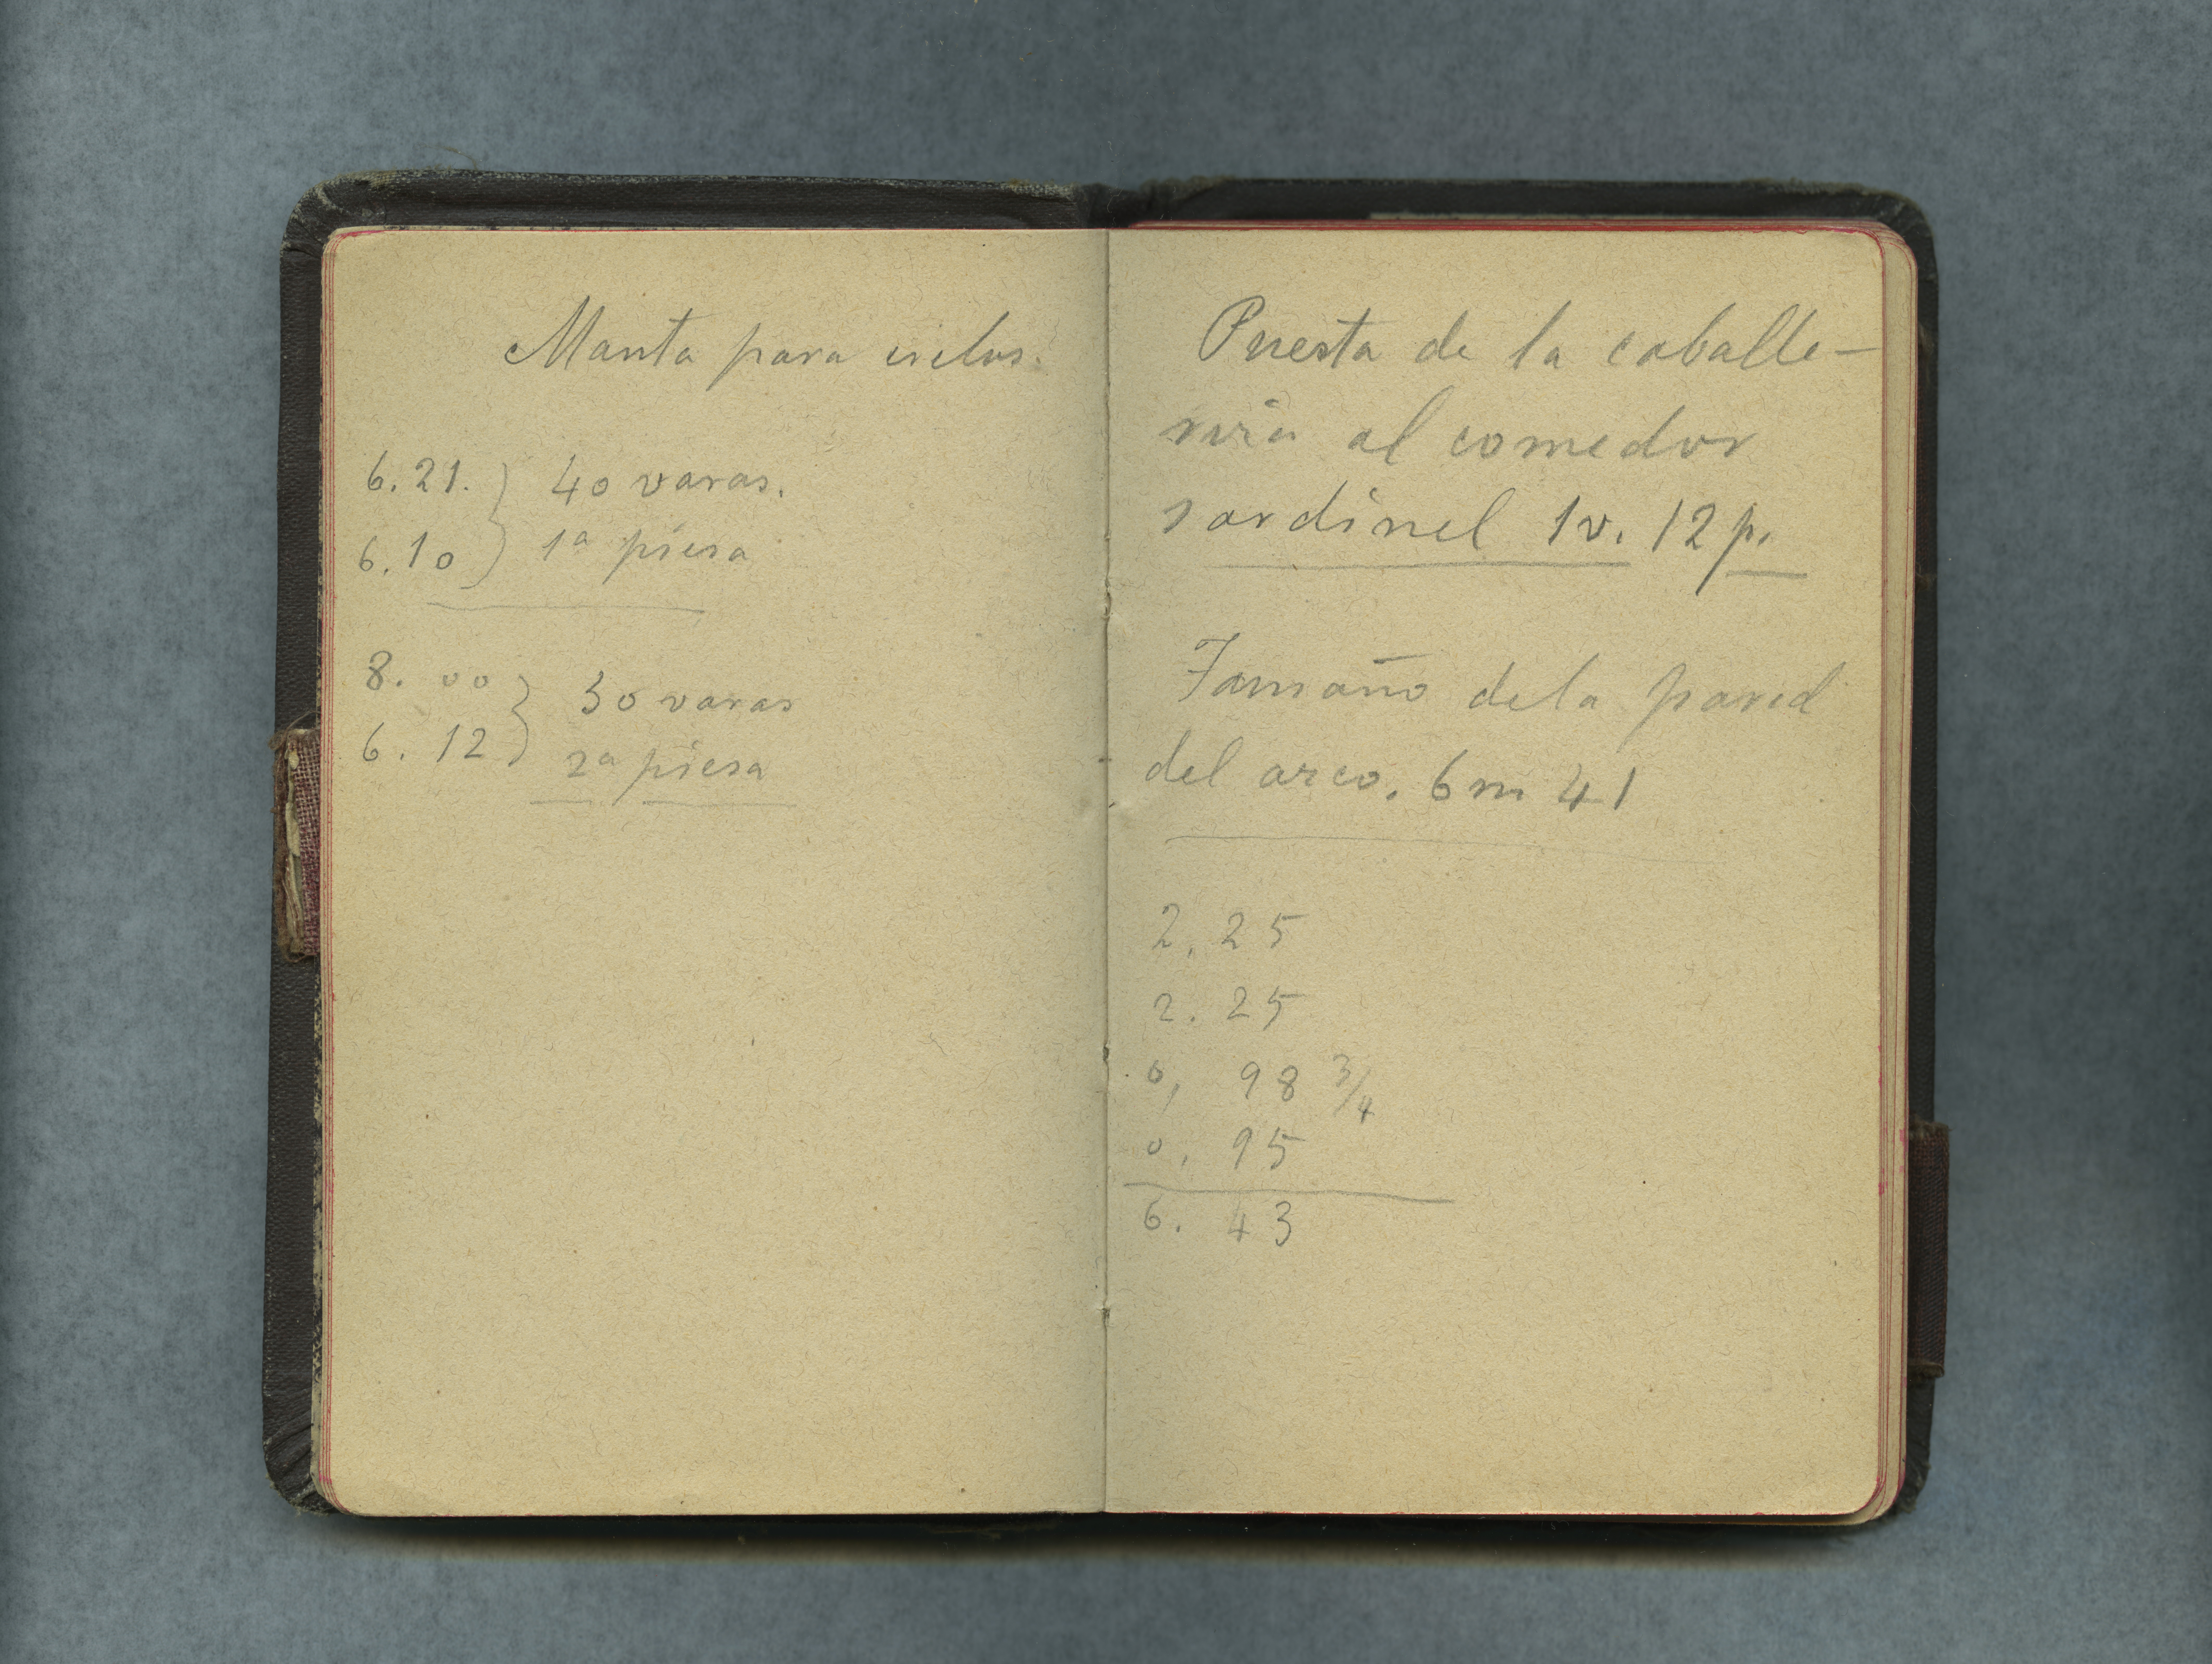 Manta para cielos.
6.21. } 40 varas.
6.10 } 1ª piesa
8. 00 } 50 varas
6. 12 } 2ª piesa
Puesta de la caballe-
riza al comedor
sardinel 1v. 12 p.
Tamaño de la pared
del arco. 6 m 41
2. 25
2. 25
0, 98 3/4
0, 95
6. 43